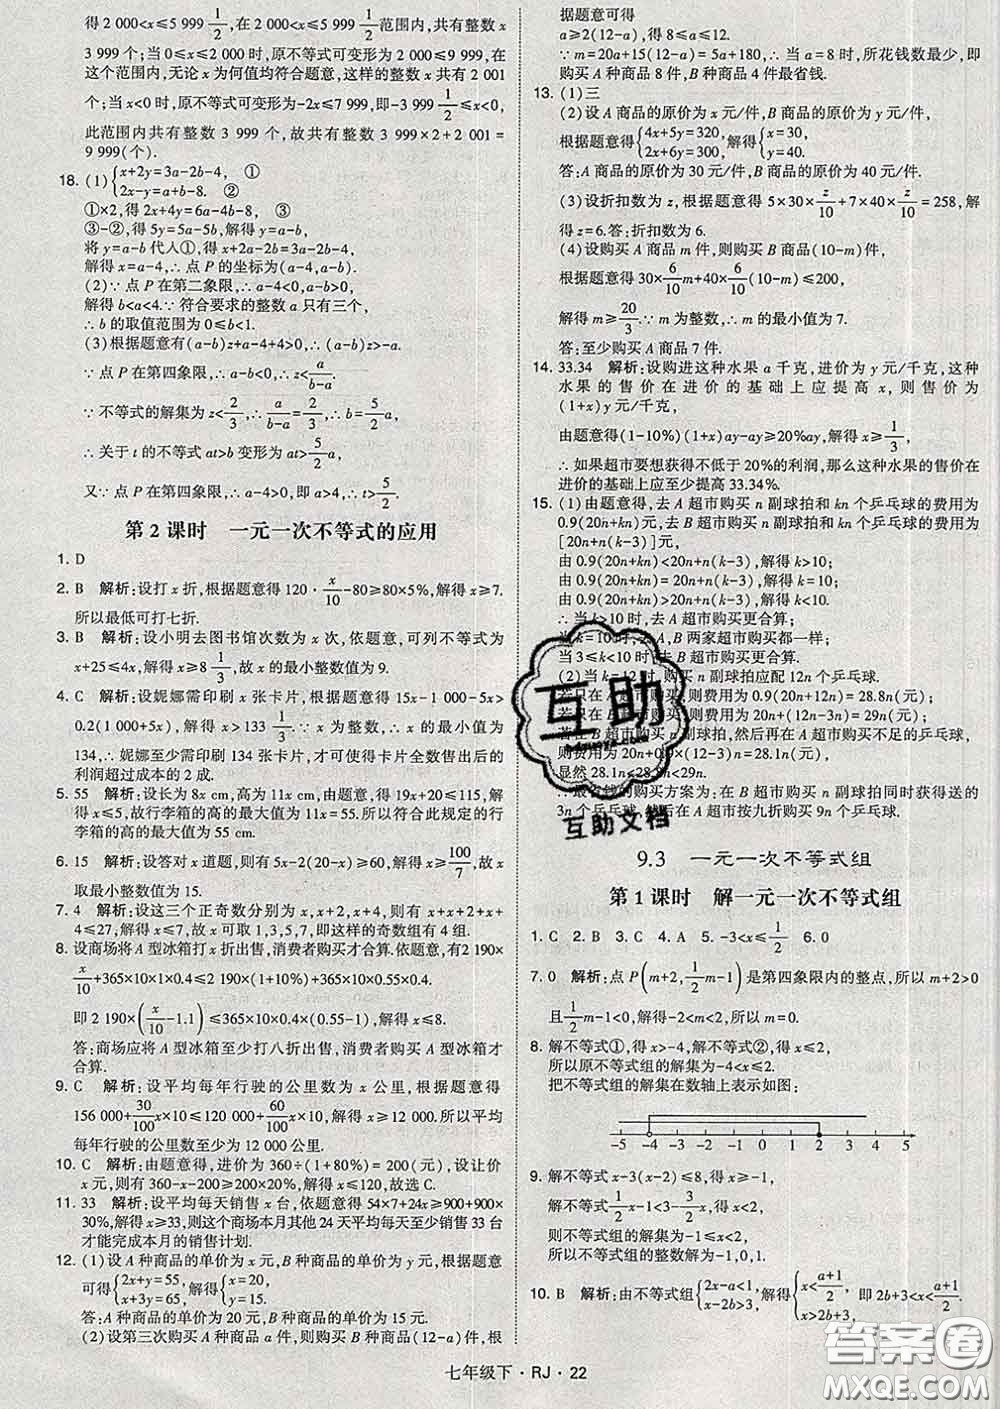 得 2 000<x≤5 999 1/2,在 2 000<x≤5 999 1/2范围内,共有整数
3 999 个;当 0≤x≤2 000 时,原不等式可变形为-2 000≤9 999,
在这个范围内,无论 x 为何值均符合题意,这样的整数共有 2 001
个;当 x<0 时,原不等式可变形为-2x≤7 999,即-3 999 1/2≤x<0,
此范围内共有整数 3 999 个,故共有整数 3 999×2+2 001=
9 999(个).
18. (1){x+2y=3a-2b-4, ①
2x-y=a-b-4. ②
①×2,得 2x+4y=6a-4b-8, ③
③-②,得 5y=5a-5b,解得 y=a-b.
将 y=a-b 代人①,得 x+2a-2b=3a-2b-4,
解得 x=a-4,∴ 点 P 的坐标为(a-4,a-b).
(2)∵ 点 P 在第二象限,∴ a-4<0,a-b>0,
解得 b<a<4.∵ 符合要求的整数 a 只有三个,
∴ b 的取值范围为 0≤b<1.
(3)根据题意得(a-b)z+a-4+4>0,∴ (a-b)z>-a.
∵ 点 P 在第四象限,∴ a-b<0,∴ z<a/(b-a).
∵ 不等式的解集为 z<2/3,∴ a/(b-a)=2/3,∴ b=5/2a,
∴ 关于 t 的不等式 at>b 变形为 at>5/2a,
又∵ 点 P 在第四象限,∴ a-4>0,即 a>4,∴ t>5/2.
第 2 课时 一元一次不等式的应用
1. D
2. B 解析:设打 x 折,根据题意得 120·x/10-80≥80×5%,解得 x≥7.
所以最低可打七折.
3. B 解析:设小明去图书馆次数为 x 次,依题意,可列不等式为
x+25≤4x,解得 x≥8 1/3,故 x 的最小整数值为 9.
4. C 解析:设妮娜需印刷 x 张卡片,根据题意得 15x-1 000-5x>
0.2(1 000+5x),解得 x>133 1/3.∵ x 为整数,∴ x 的最小值为
134,∴ 妮娜至少需印刷 134 张卡片,才可使得卡片全部售出后的
利润超过成本的 2 成.
5. 55 解析:设长为 8x cm,高为 11x cm,由题意,得 19x+20≤115,解
得 x≤5,故行李箱的高的最大值为 11x=55.所以符合此规定的行
李箱的高的最大值为 55 cm.
6. 15 解析:设答对 x 道题,则有 5x-2(20-x)≥60,解得 x≥100/7,故 x
取最小整数值为 15.
7. 4 解析:设这三个正奇数分别为 x,x+2,x+4,则有 x+x+2+x+4≤
27,解得 x≤7,故 x 可取 1,3,5,7,即这样的奇数组有 4 组.
8. 设商场将 A 型冰箱打 x 折出售,消费者购买才合算.依题意,有 2 190×
x/10+365×10×1×0.4≤2 190×(1+10%)+365×10×0.55×0.4,
即 2 190×(x/10-1.1)≤365×10×0.4×(0.55-1),解得 x≤8.
答:商场应将 A 型冰箱至少打八折出售,消费者购买 A 型冰箱才
合算.
9. C 解析:设平均每年行驶的公里数为 x 公里,根据题意得
156 000+30/100x×10≤120 000+60/100x×10,解得 x≥12 000.所以平均
每年行驶的公里数至少为 12 000 公里.
10. C 解析:由题意得,进价为 360÷(1+80%)=200(元),设让价
x 元,则 360-x-200≥200×20%,解得 x≤120,故选 C.
11. 33 解析:设平均每天销售 x 台,依题意得 54×7+24x≥900+900×
30%,解得 x≥33,则这个商场本月其他 24 天平均每天至少销售 33 台
才能完成本月的销售计划.
12. (1)设 A 种商品的单价为 x 元,B 种商品的单价为 y 元,根据题意
可得{2x+y=55,
x+3y=65,解得{x=20,
y=15.
答:A 种商品的单价为 20 元,B 种商品的单价为 15 元.
(2)设第三次购买 A 种商品 a 件,则购买 B 种商品(12-a)件,根
据题意可得
a≥2(12-a),得 8≤a≤12.
∵ m=20a+15(12-a)=5a+180,∴ 当 a=8 时,所花钱数最少,即
购买 A 种商品 8 件,B 种商品 4 件最省钱.
13. (1)三
(2)设 A 商品的原价为 x 元/件,B 商品的原价为 y 元/件,
根据题意得{4x+5y=320,
2x+6y=300,解得{x=30,
y=40.
答:A 商品的原价为 30 元/件,B 商品的原价为 40 元/件.
(3)设折扣数为 z,根据题意得 5×30×z/10+7×40×z/10=258,解
得 z=6.答:折扣数为 6.
(4)设购买 A 商品 m 件,则购买 B 商品(10-m)件,
根据题意得 30×6/10m+40×6/10(10-m)≤200,
解得 m≥20/3.∵ m 为整数,∴ m 的最小值为 7.
答:至少购买 A 商品 7 件.
14. 33.34 解析:设购进这种水果 a 千克,进价为 y 元/千克,这种
水果的售价在进价的基础上应提高 x,则售价为
(1+x)y 元/千克,
由题意得(1-10%)(1+x)ay-ay≥20%ay,解得 x≥1/3,
∴ 如果超市要想获得不低于 20%的利润,那么这种水果的售价在
进价的基础上应至少提高 33.34%.
15. (1)由题意得,去 A 超市购买 n 副球拍和 kn 个乒乓球的费用为
0.9(20n+kn)元,去 B 超市购买 n 副球拍和 kn 个乒乓球的费用为
[20n+n(k-3)]元,
由 0.9(20n+kn)<20n+n(k-3),解得 k>10;
由 0.9(20n+kn)=20n+n(k-3),解得 k=10;
由 0.9(20n+kn)>20n+n(k-3),解得 k<10.
∴ 当 k>10 时,去 A 超市购买更合算;
当 k=10 时,去 A,B 两家超市购买都一样;
当 3≤k<10 时,去 B 超市购买更合算.
(2)当 k=12 时,购买 n 副球拍应配 12n 个乒乓球.
若只在 A 超市购买,则费用为 0.9(20n+12n)=28.8n(元);
若只在 B 超市购买,则费用为 20n+(12n-3n)=29n(元);
若在 B 超市购买 n 副球拍,然后再在 A 超市购买不足的乒乓球,
则费用为 20n+0.9×(12-3)n=28.1n(元).
显然 28.1n<28.8n<29n.
∴最省钱的购买方案为:在 B 超市购买 n 副球拍同时获得送的
3n 个乒乓球,然后在 A 超市按九折购买 9n 个乒乓球.
9.3 一元一次不等式组
第 1 课时 解一元一次不等式组
1. C 2. B 3. C 4. A 5. -3<x≤1/2 6. 0
7. 0 解析:点 P(m+2,1/2m-1)是第四象限内的整点,所以 m+2>0
且1/2m-1<0,解得-2<m<2,所以 m=0.
8. 解不等式①,得 x>-4,解不等式②,得 x≤2,
所以原不等式组的解集为-4<x≤2.
把不等式组的解集在数轴上表示如图:
-5 -4 -3 -2 -1 0 1 2 3 4 5
9. 解不等式 x-3(x-2)≤8,得 x≥-1,
解不等式1/2x-1<3-3/2x,得 x<2,
则不等式组的解集为-1≤x<2,
所以不等式组的整数解为-1,0,1.
10. B 解析:由不等式组{2x-a<1,
x-2b>3,解得{x<(a+1)/2,
x>2b+3,即 2b+3<x<(a+1)/2.
七年级下·RJ·22
互助
互助文档
答案圈
MXQE.COM